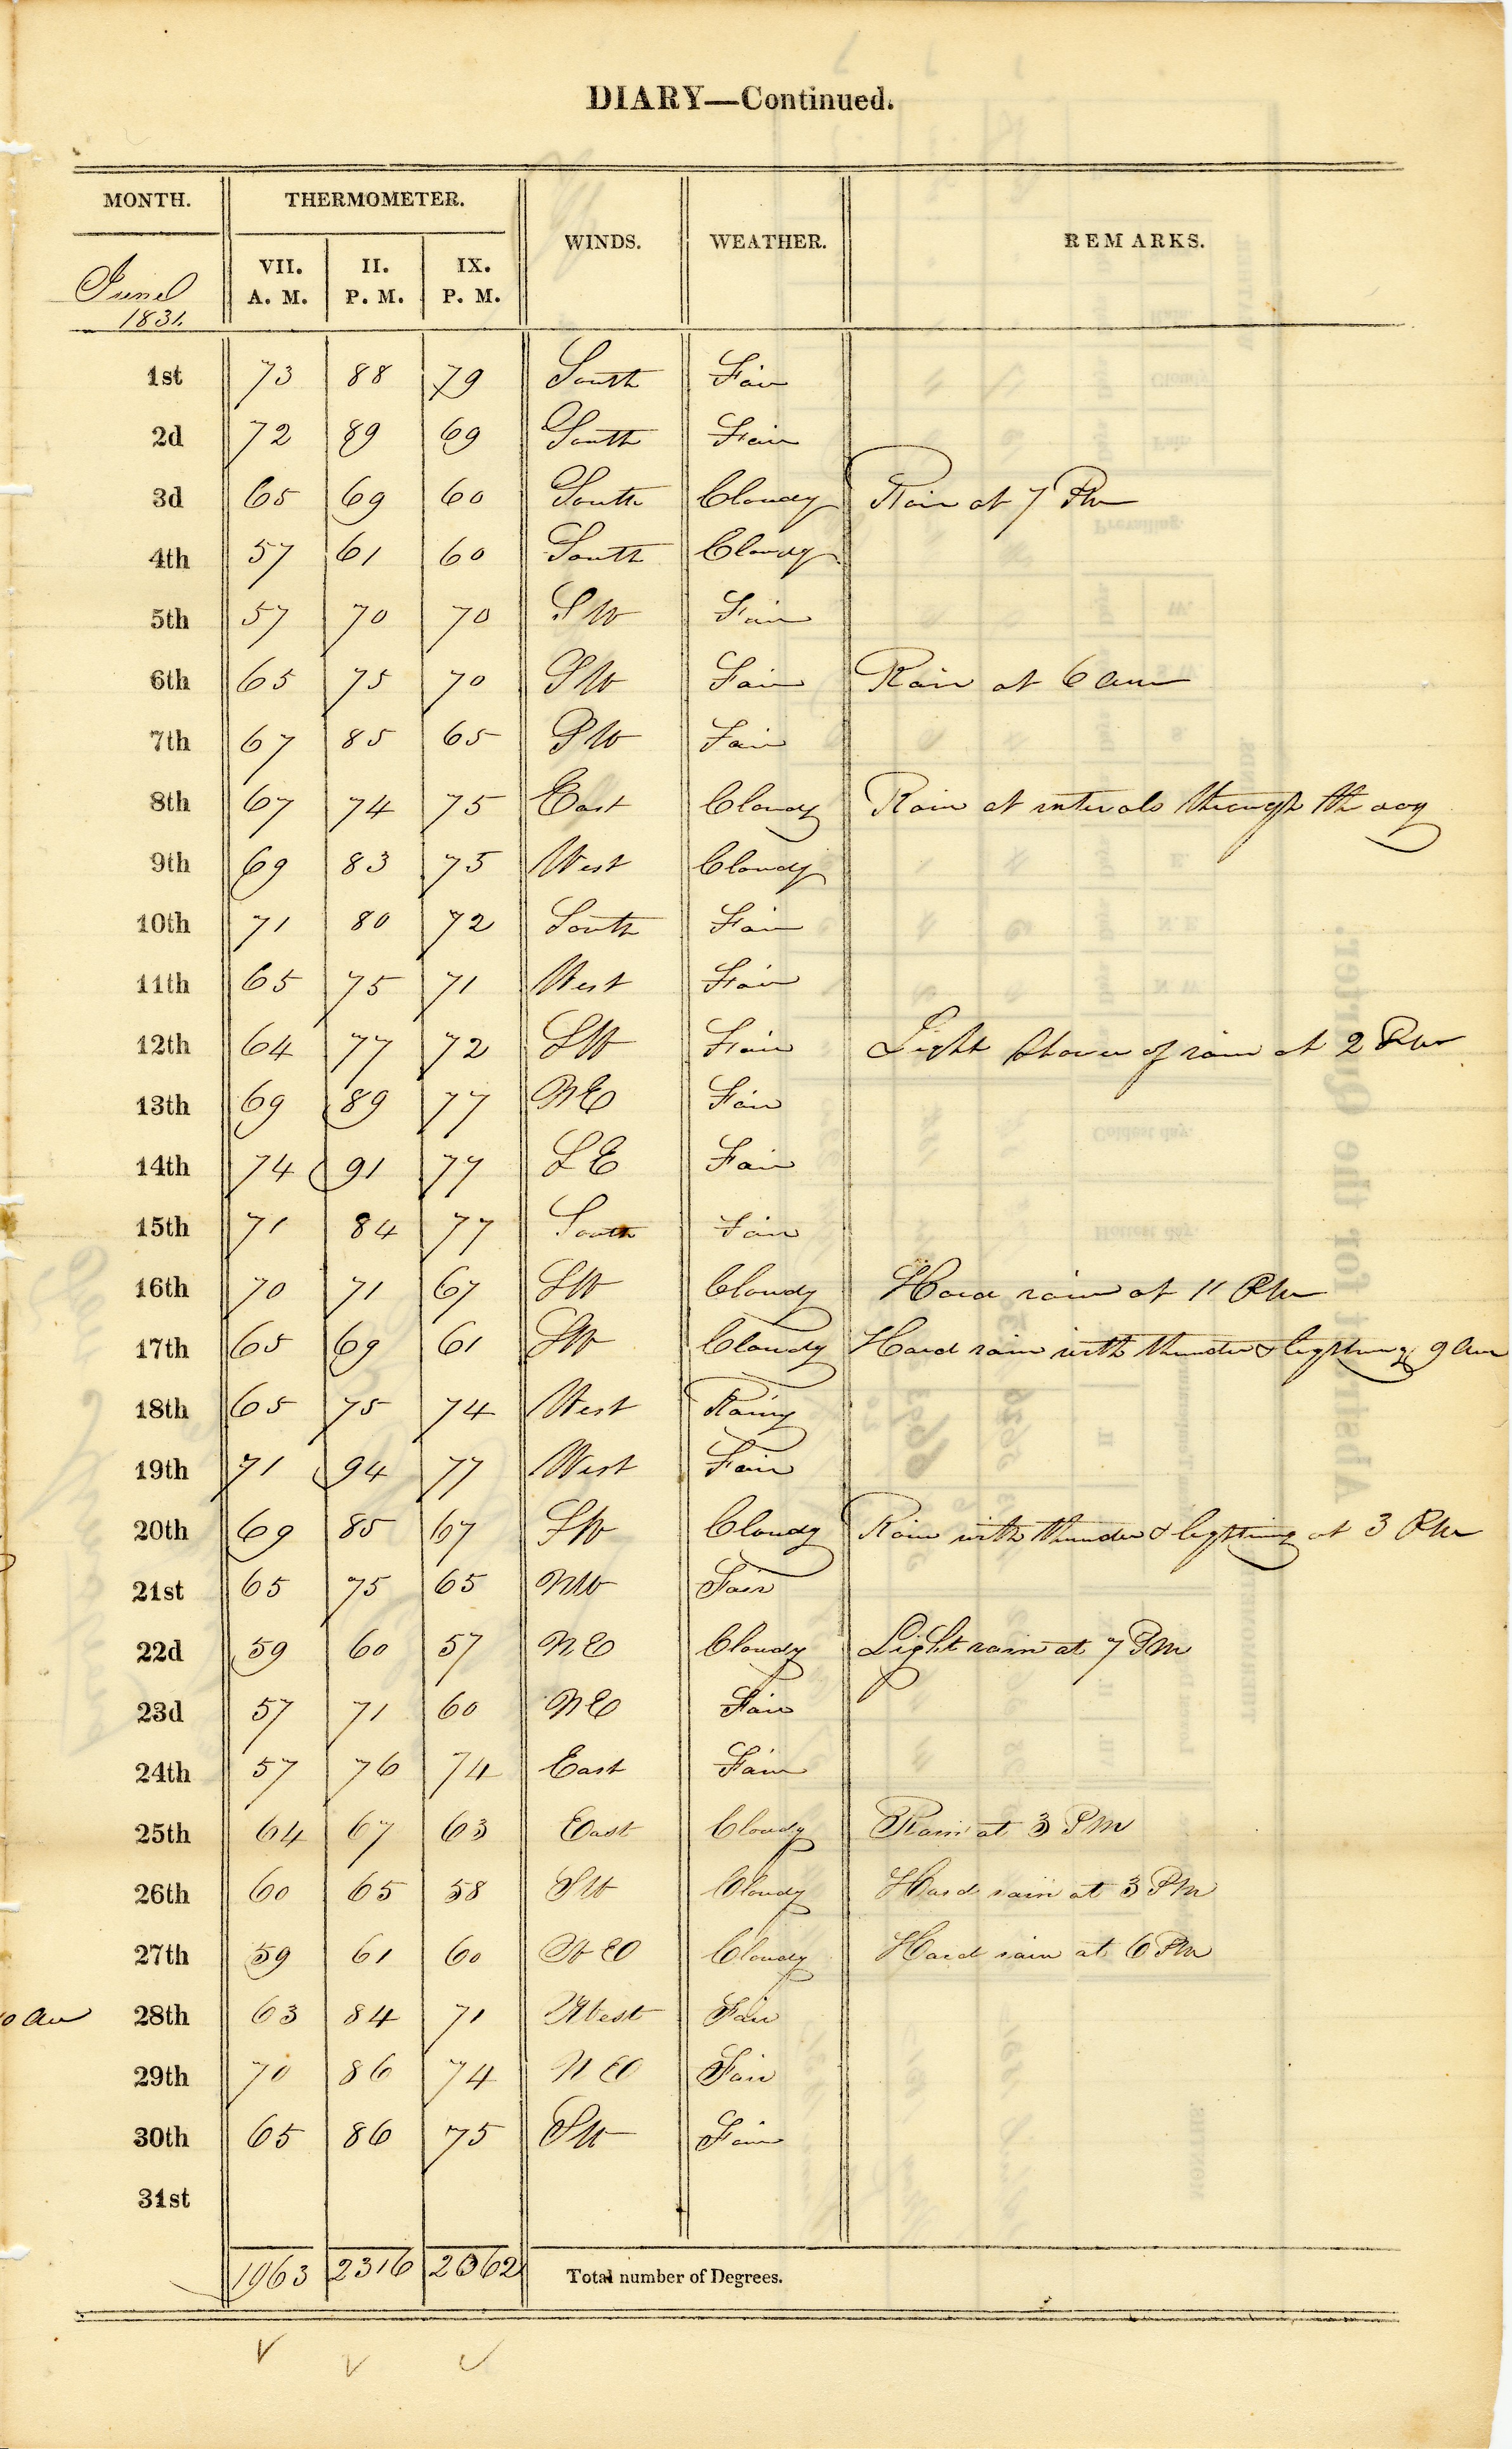 DIARY—Continued.
MONTH. THERMOMETER. WINDS. WEATHER. REMARKS.
June 1831. VII. A. M. II. P. M. IX. P. M.
1st 73 88 79 South Fair
2d 72 89 69 South Fair
3d 65 69 60 South Cloudy Rain at 7 Pm
4th 57 61 60 South Cloudy
5th 57 70 70 SW Fair
6th 65 75 70 SW Fair Rain at 6 am
7th 67 85 65 SW Fair
8th 67 74 75 East Cloudy Rain at intervals through th day
9th 69 83 75 West Cloudy
10th 71 80 72 South Fair
11th 65 75 71 West Fair
12th 64 77 72 SW Fair Light Shower of rain at 2 Pm
13th 69 89 77 NE Fair
14th 74 91 77 SE Fair
15th 71 84 77 South Fair
16th 70 71 67 SW Cloudy Hard rain at 11 Pm
17th 65 69 61 SW Cloudy Hard rain with thunder & lightning 9 am
18th 65 75 74 West Rainy
19th 71 94 77 West Fair
20th 69 85 67 SW Cloudy Rain with thunder & lightning at 3 Pm
21st 65 75 65 NW Fair
22d 59 60 57 NE Cloudy Light rain at 7 Pm
23d 57 71 60 NE Fair
24th 57 76 74 East Fair
25th 64 67 63 East Cloudy Rain at 3 Pm
26th 60 65 58 SW Cloudy Hard rain at 3 Pm
27th 59 61 60 Cloudy Hard rain at 6 Pm
28th 63 84 71 West Fair
29th 70 86 74 NE Fair
30th 65 86 75 SW Fair
31st
1963 2316 2062 Total number of Degrees.